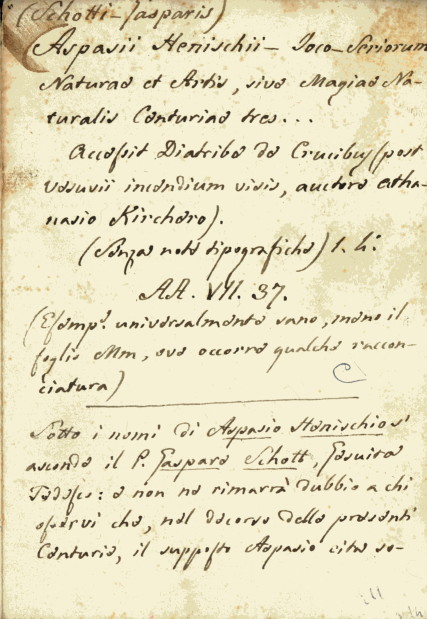 (Schotti-Gasparis)
Aspasii Henischii - Joco-Seriorum
Naturae et Artis, sive Magiae Na-
turalis Centuriae tres...
Accessit Diatribe de Crucibus (post
Vesuvii incendium visis, auctore Atha-
nasio Kirchero).
(Senza note tipografiche) 1. 4.º
AA. VII. 37.
(Esemp.e universalmente sano, meno il
foglio Mm, ove occorre qualche raccon-
ciatura)
Sotto i nomi di Aspasio Henischio si
asconde il P. Gaspare Schott, Gesuita
Tedesco: e non ne rimarrà dubbio a chi
osservi che, nel decorso delle presenti
Centurie, il supposto Aspasio cita so-